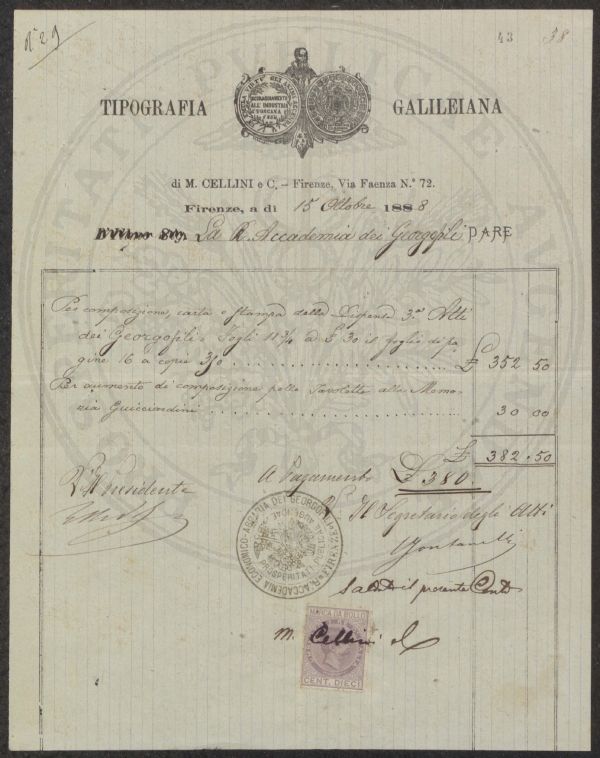 N° 29
43 38
TIPOGRAFIA GALILEIANA
INCORAGGIAMENTO
ALL'INDUSTRIA
TOSCANA
di M. CELLINI e C. – Firenze, Via Faenza N.° 72.
Firenze, a dì 15 Ottobre 1888
La R. Accademia dei Georgofili DARE
Per composizione, carta e stampa della Dispensa 3.a Atti
dei Georgofili. Fogli 11 3/4 a £ 30 il foglio di pa-
gine 16 a copie 350 £ 352 50
Per aumento di composizione nelle Tavolette alla Memo-
ria Guicciardini 30 00
£ 382.50
V° Il Presidente
A Pagamento £ 380.
Il Segretario degli Atti
R. ACCADEMIA ECONOMICO-AGRARIA DEI GEORGOFILI DI FIRENZE
PROSPERITATI PUBLICAE AUGENDAE
Saldato il presente Conto
M. Cellini e C
MARCA DA BOLLO
CENT. DIECI